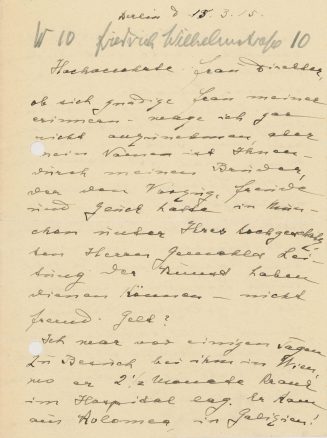 Berlin d 15.3.15.
W 10 Friedrich Wilhelmstraße 10
Hochverehrte Frau Direktor,
ob sich gnädige Frau meiner
erinnern – wage ich gar
nicht anzunehmen, aber
mein Namen ist Ihnen
durch meinen Bruder,
der den Vorzug, Freude
und Genuß hatte in Mün-
chen unter Ihres hochgeschätz
ten Herrn Gemahls Lei-
tung der Kunst haben
dienen können – nicht
fremd. Gelt?
Ich war vor einigen Tagen
zu Besuch bei ihm in Wien,
wo er 2½ Monate krank
im Hospital lag. Er kam
aus Kolomea, in Galizien!